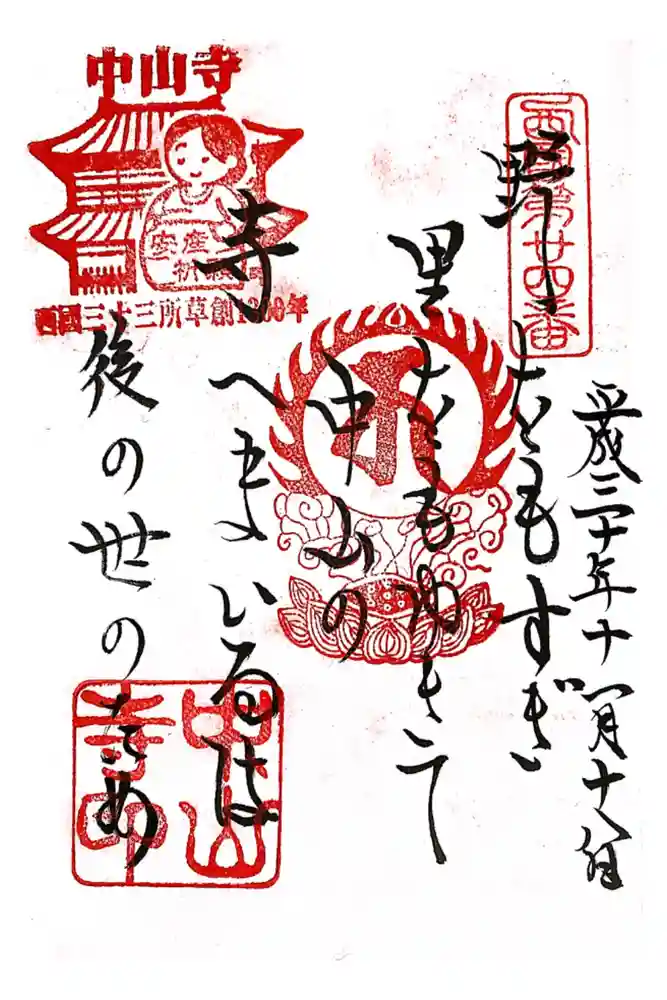 西国第廿四番
平成三十年十一月十八日
野をもすぎ
里をもゆきて
中山の
寺へまいるは
後の世のため
中山寺
安産
祈願
西國三十三所草創1300年
中山
寺印